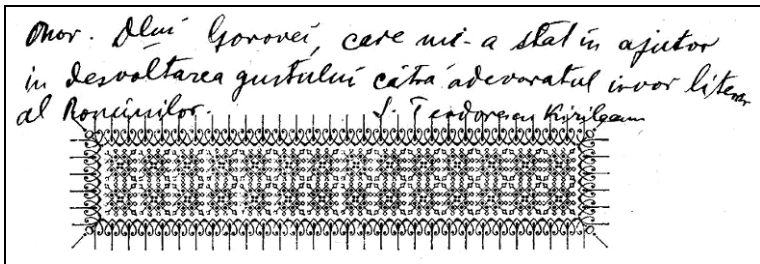 Onor. Dlui Gorovei, care mi-a stat în ajutor
in desvoltarea gustului cătră adevoratul isvor literar
al Românilor. S. Teodorescu Kirileanu